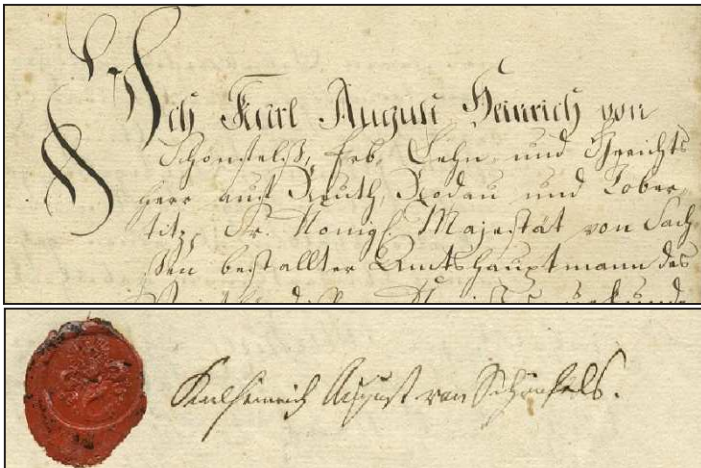 Ich Karl August Heinrich von
Schönfelß, Erb, Lehn, und Gerichts
herr auf Reuth, Rodau und Tober,
titz, Sr. Königl. Majestät von Sach,
ßen bestallter Amtshauptmann des
Karl Heinrich August von Schönfels.